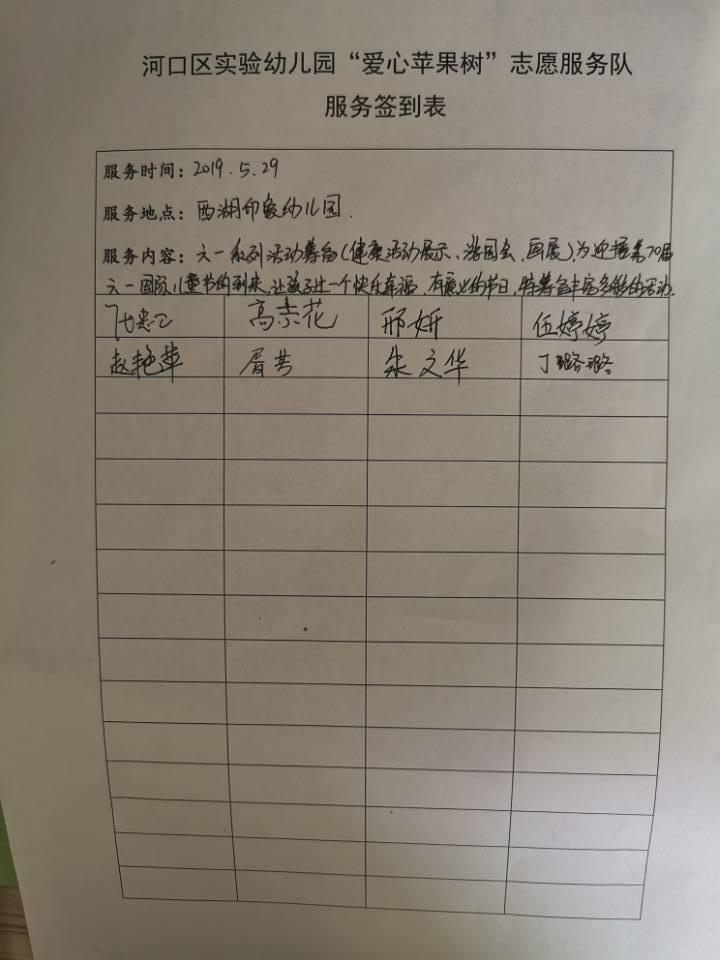 河口区实验幼儿园“爱心苹果树”志愿服务队
服务签到表
服务时间：2019.5.29
服务地点：西湖印象幼儿园.
服务内容：六一系列活动筹备(健康活动展示、游园会、画展),为迎接第70届
六一国际儿童节的到来,让孩子过一个快乐幸福、有意义的节日,特筹备丰富多彩的活动.
高素花 邢妍 伍婷婷
赵艳萍 胥芸 朱文华 丁璐璐